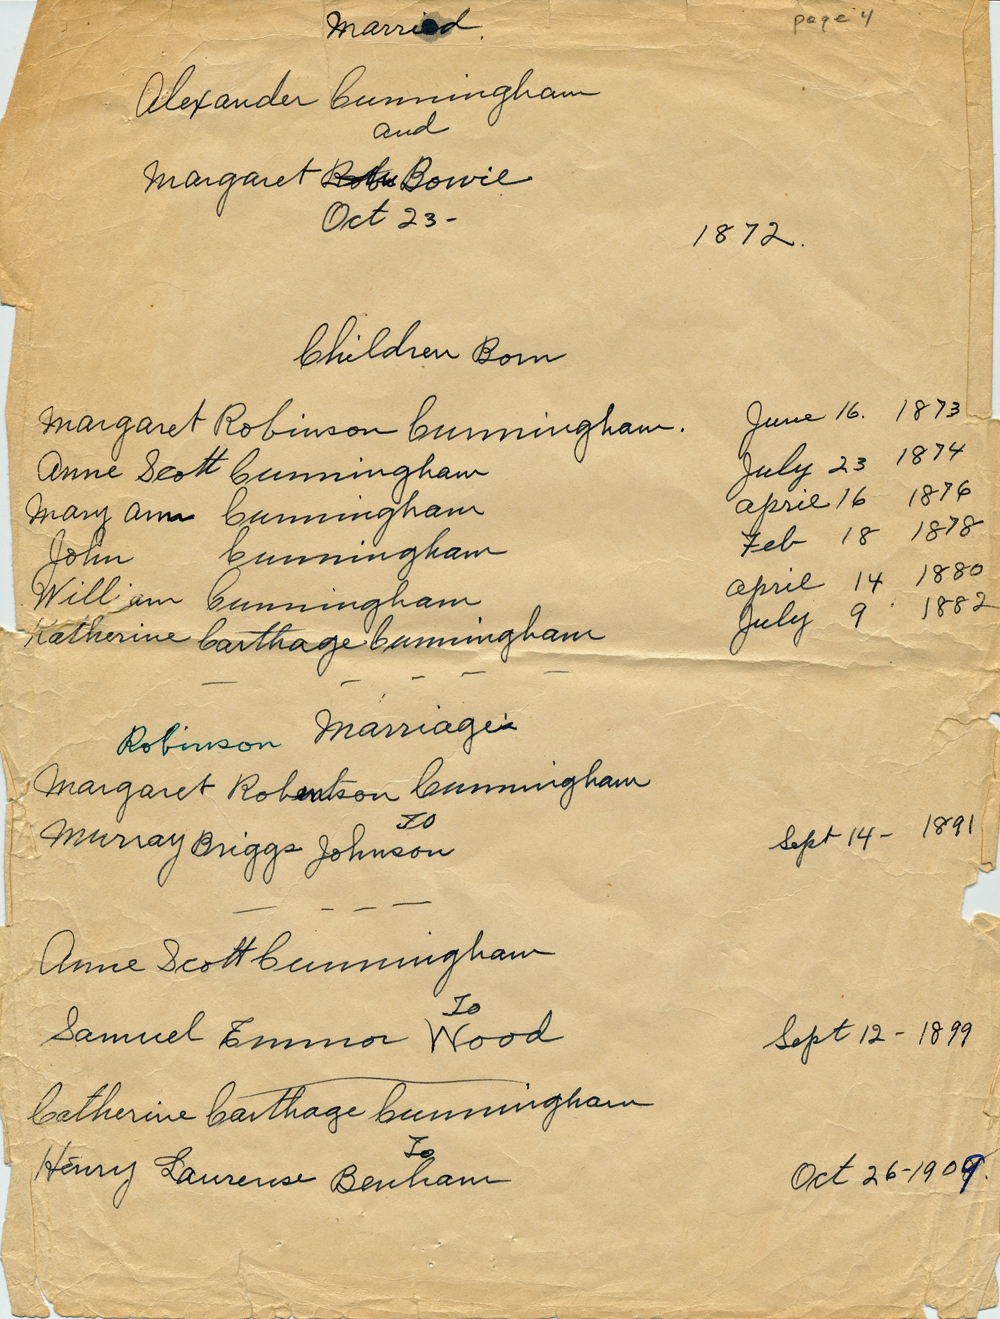 page 4
Married.
Alexander Cunningham
and
Margaret Bowie
Oct 23- 1872.
Children Born
Margaret Robinson Cunningham. June 16. 1873
Anne Scott Cunningham July 23 1874
Mary Ann Cunningham April 16 1876
John Cunningham Feb 18 1878
William Cunningham April 14 1880
Katherine Carthage Cunningham July 9 1882
Marriages
Robinson
Margaret Robertson Cunningham
To
Murray Briggs Johnson Sept 14- 1891
Anne Scott Cunningham
To
Samuel Emmor Wood Sept 12- 1899
Catherine Carthage Cunningham
To
Henry Laurense Benham Oct 26-1909.